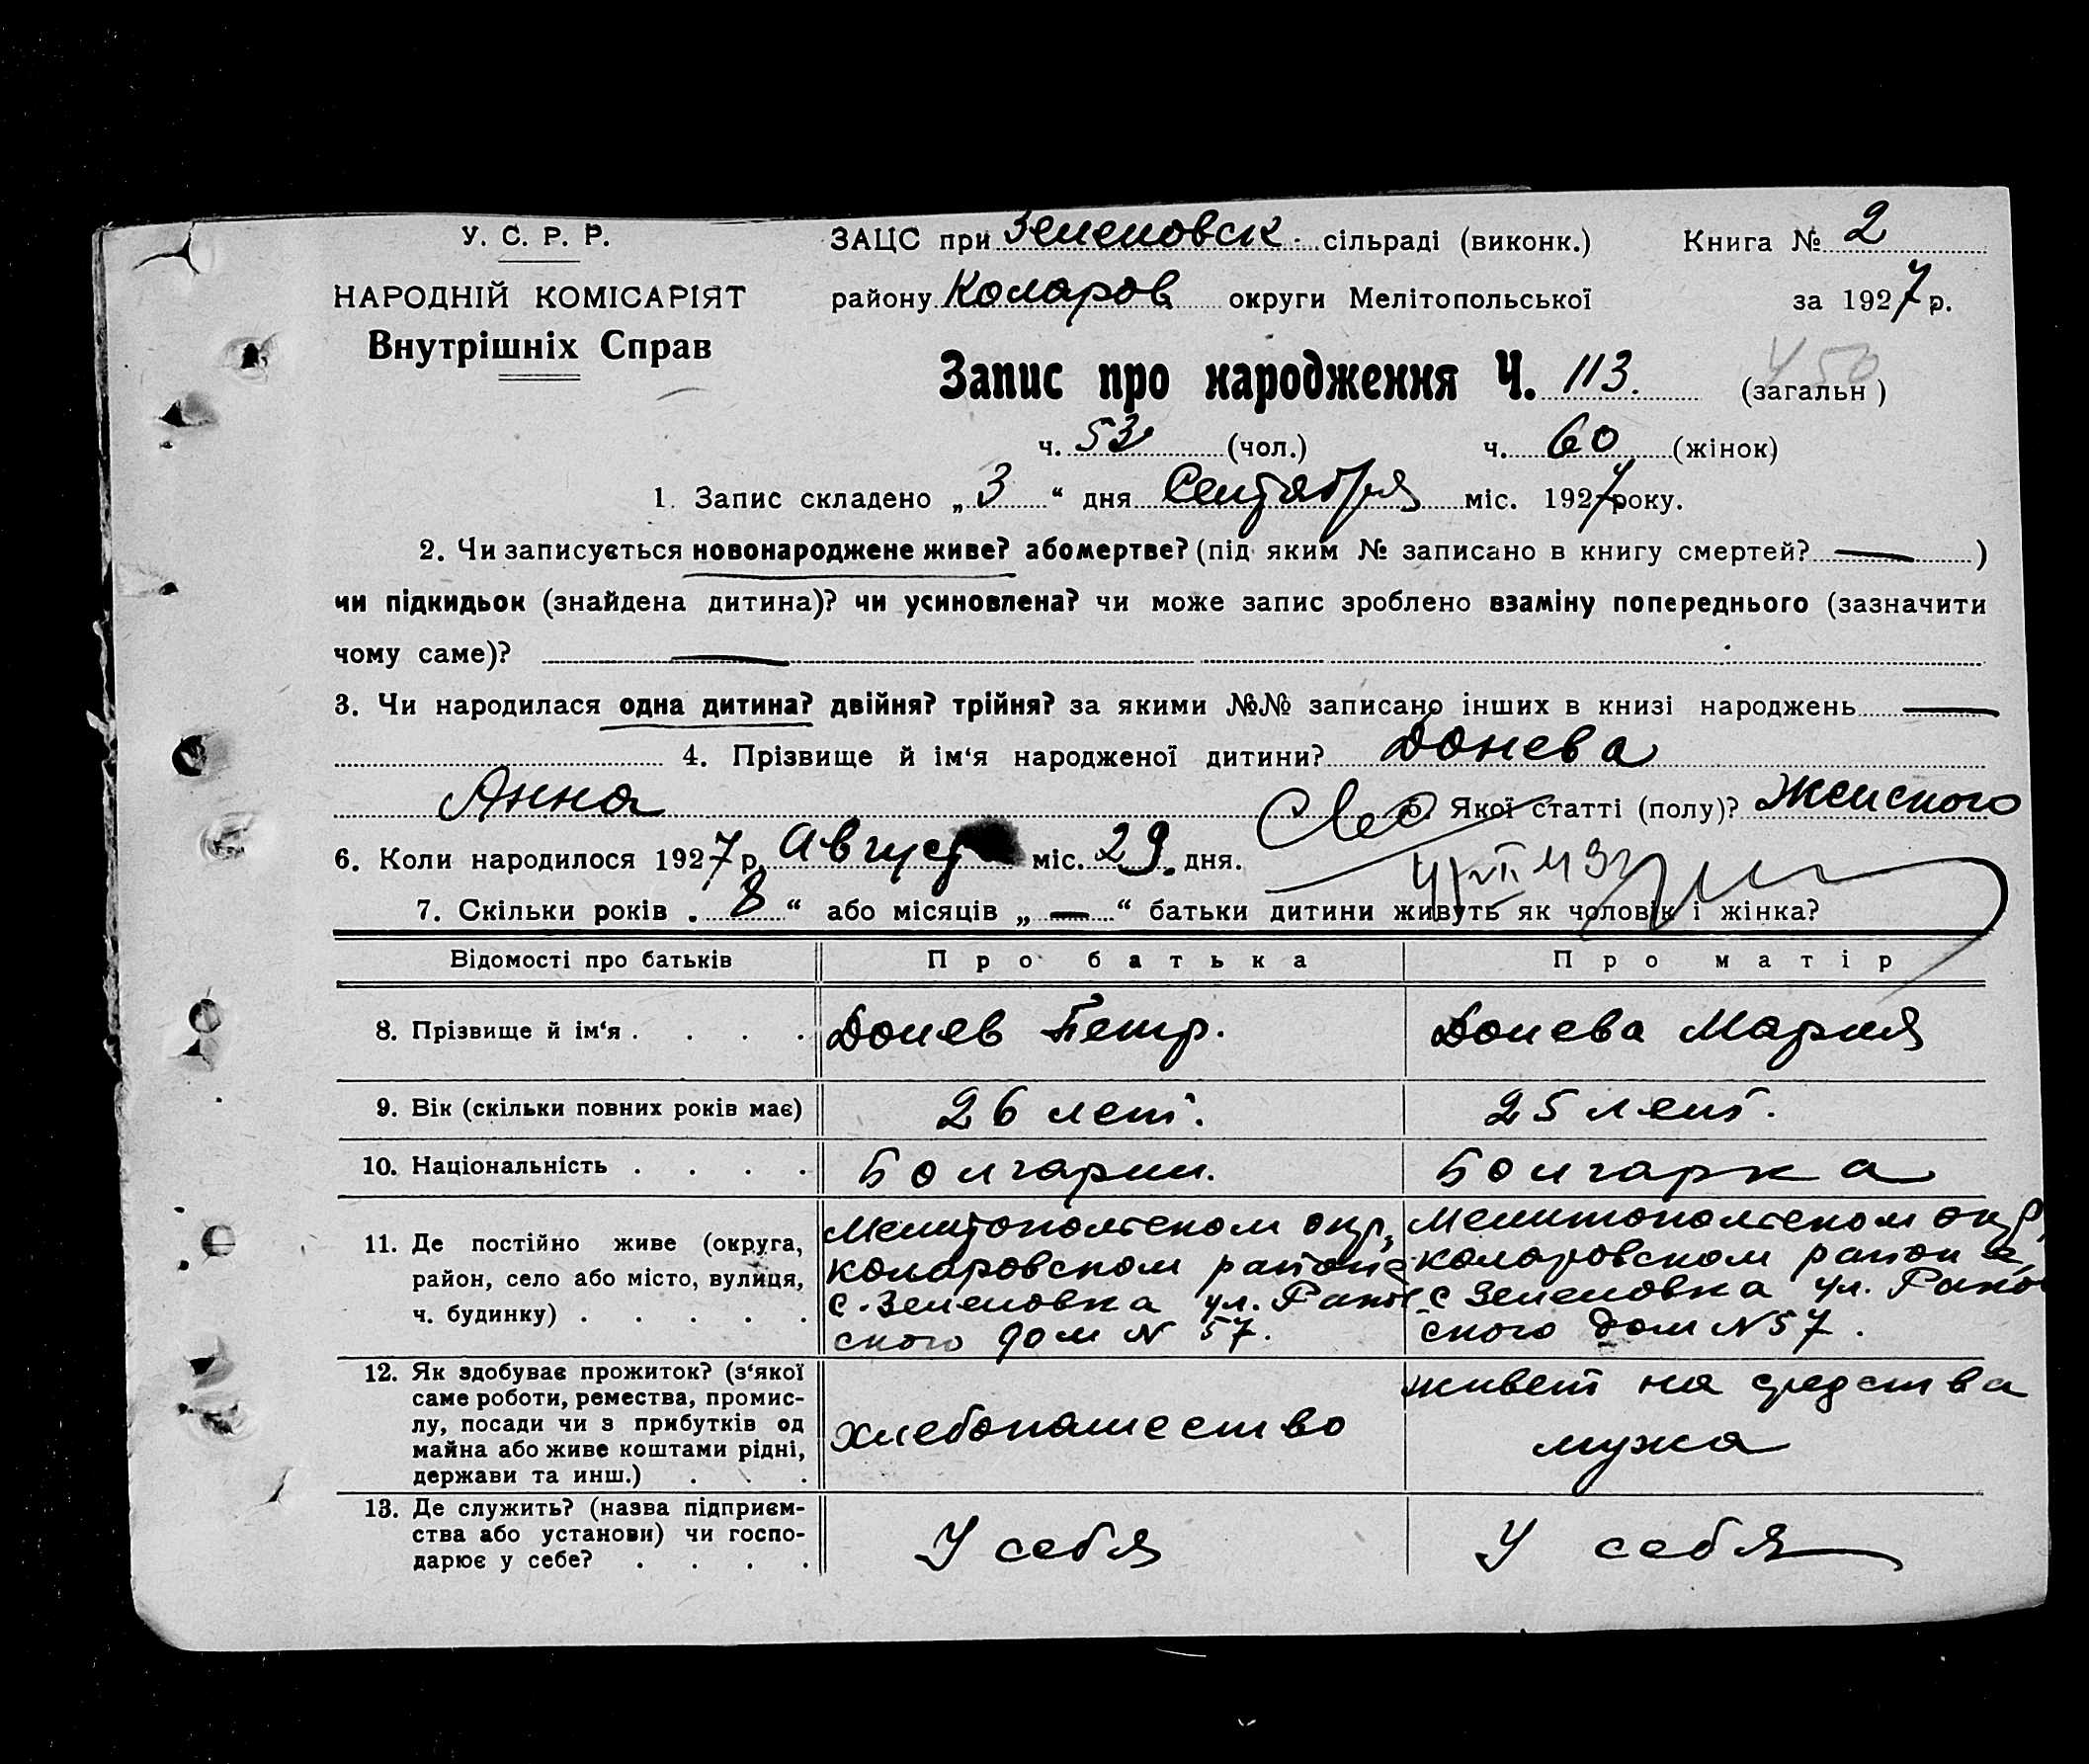 У. С. Р. Р.
НАРОДНІЙ КОМІСАРІЯТ
Внутрішніх Справ
ЗАЦС при Зеленовск. сільраді (виконк.) Книга № 2
району Коларов округи Мелітопольської за 1927 р.
Запис про народження Ч. 113. (загальн)
ч. 53 (чол.) ч. 60 (жінок)
1. Запис складено „3“ дня Сентября міс. 1927 року.
2. Чи записується новонароджене живе? або мертве? (під яким № записано в книгу смертей? — )
чи підкидьок (знайдена дитина)? чи усиновлена? чи може запис зроблено взаміну попереднього (зазначити
чому саме)? —
3. Чи народилася одна дитина? двійня? трійня? за якими №№ записано інших в книзі народжень —
4. Прізвище й ім‘я народженої дитини? Донева
Анна 5. Якої статті (полу)? Женского
6. Коли народилося 1927 р. Август міс. 29. дня.
7. Скільки років „8“ або місяців „—“ батьки дитини живуть як чоловік і жінка?
Відомості про батьків Про батька Про матір
8. Прізвище й ім‘я . . . . Донев Петр. Донева Мария
9. Вік (скільки повних років має) 26 лет. 25 лет.
10. Національність . . . . Болгарин. Болгарка
11. Де постійно живе (округа,
район, село або місто, вулиця,
ч. будинку) . . . . .
Мелитопольском окр,
коларовском районе
с. Зеленовка ул. Раков
ского дом N 57.
Мелитопольском окр,
коларовском районе,
с Зеленовка ул. Раков
ского Дом N 57.
12. Як здобуває прожиток? (з‘якої
саме роботи, ремества, промис-
лу, посади чи з прибутків од
майна або живе коштами рідні,
держави та инш.) . . .
хлебопашество
живет на средства
мужа
13. Де служить? (назва підприєм-
ства або установи) чи госпо-
дарює у себе? . . . .
У себя
У себя